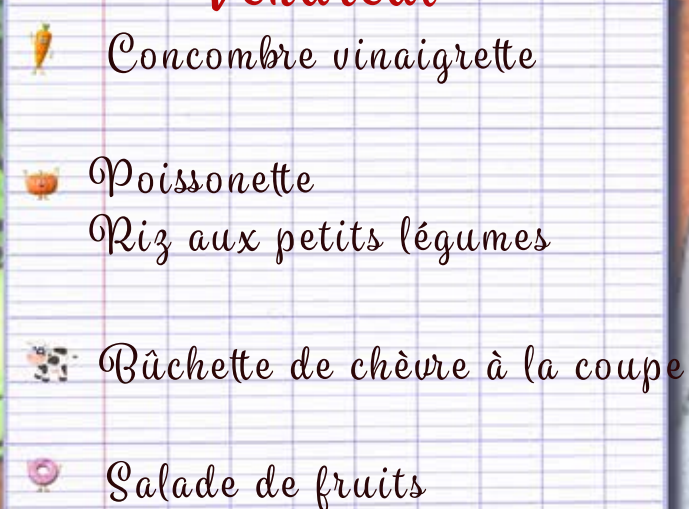 Vendredi
Concombre vinaigrette
Poissonette
Riz aux petits légumes
Bûchette de chèvre à la coupe
Salade de fruits